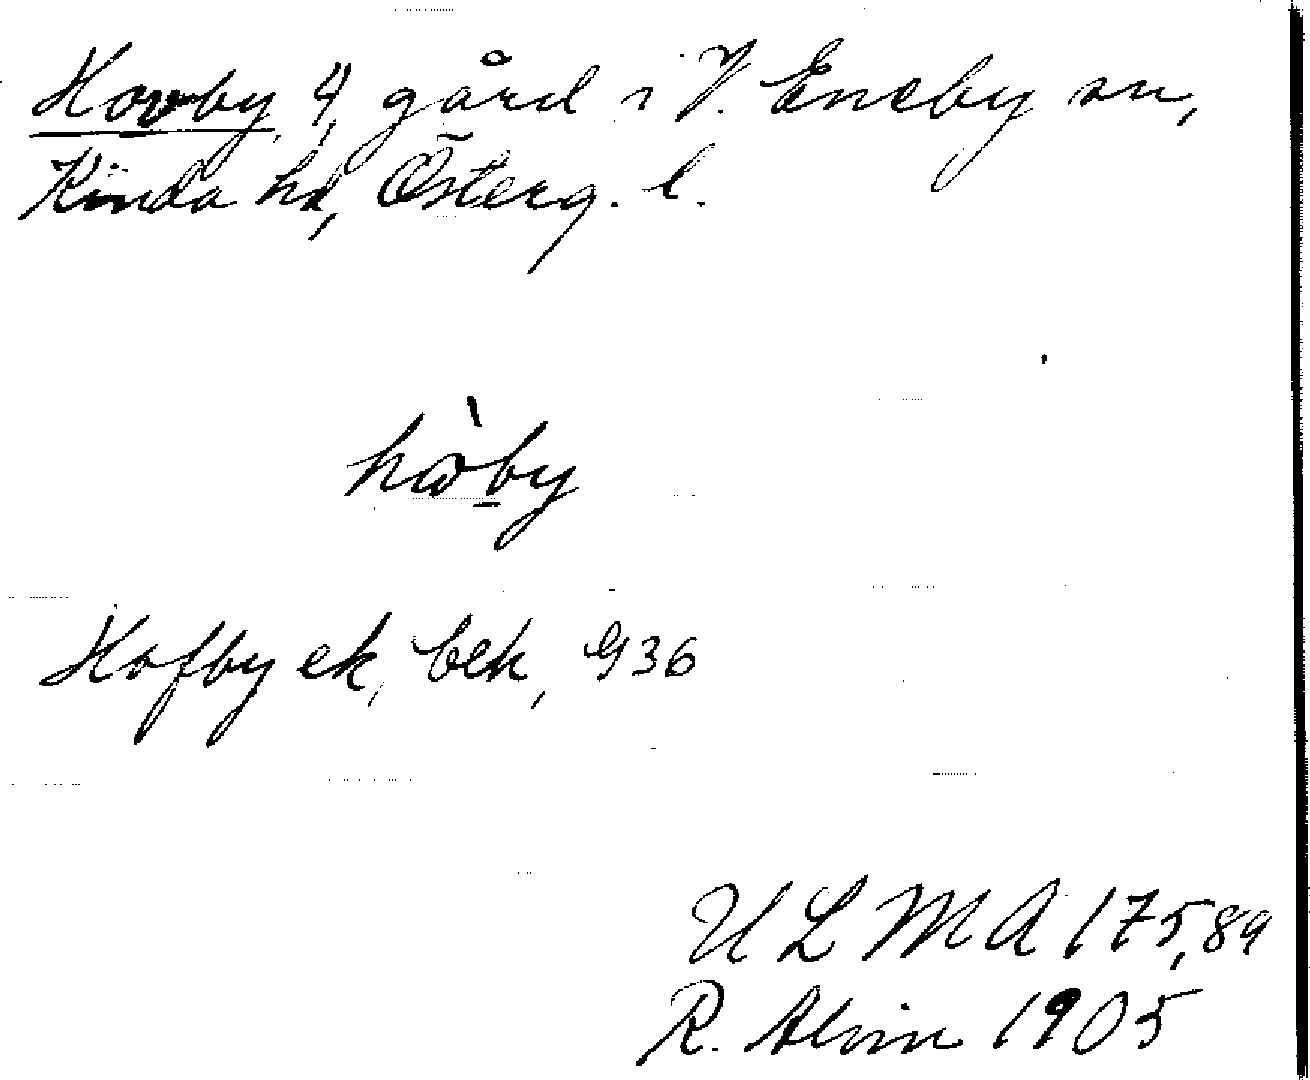 Hovby, 4, gård i V. Eneby sn,
Kinda hd, Österg. l.
hàby
Hofby ek, bek, G36
ULMA 175,89
R. Alvin 1905